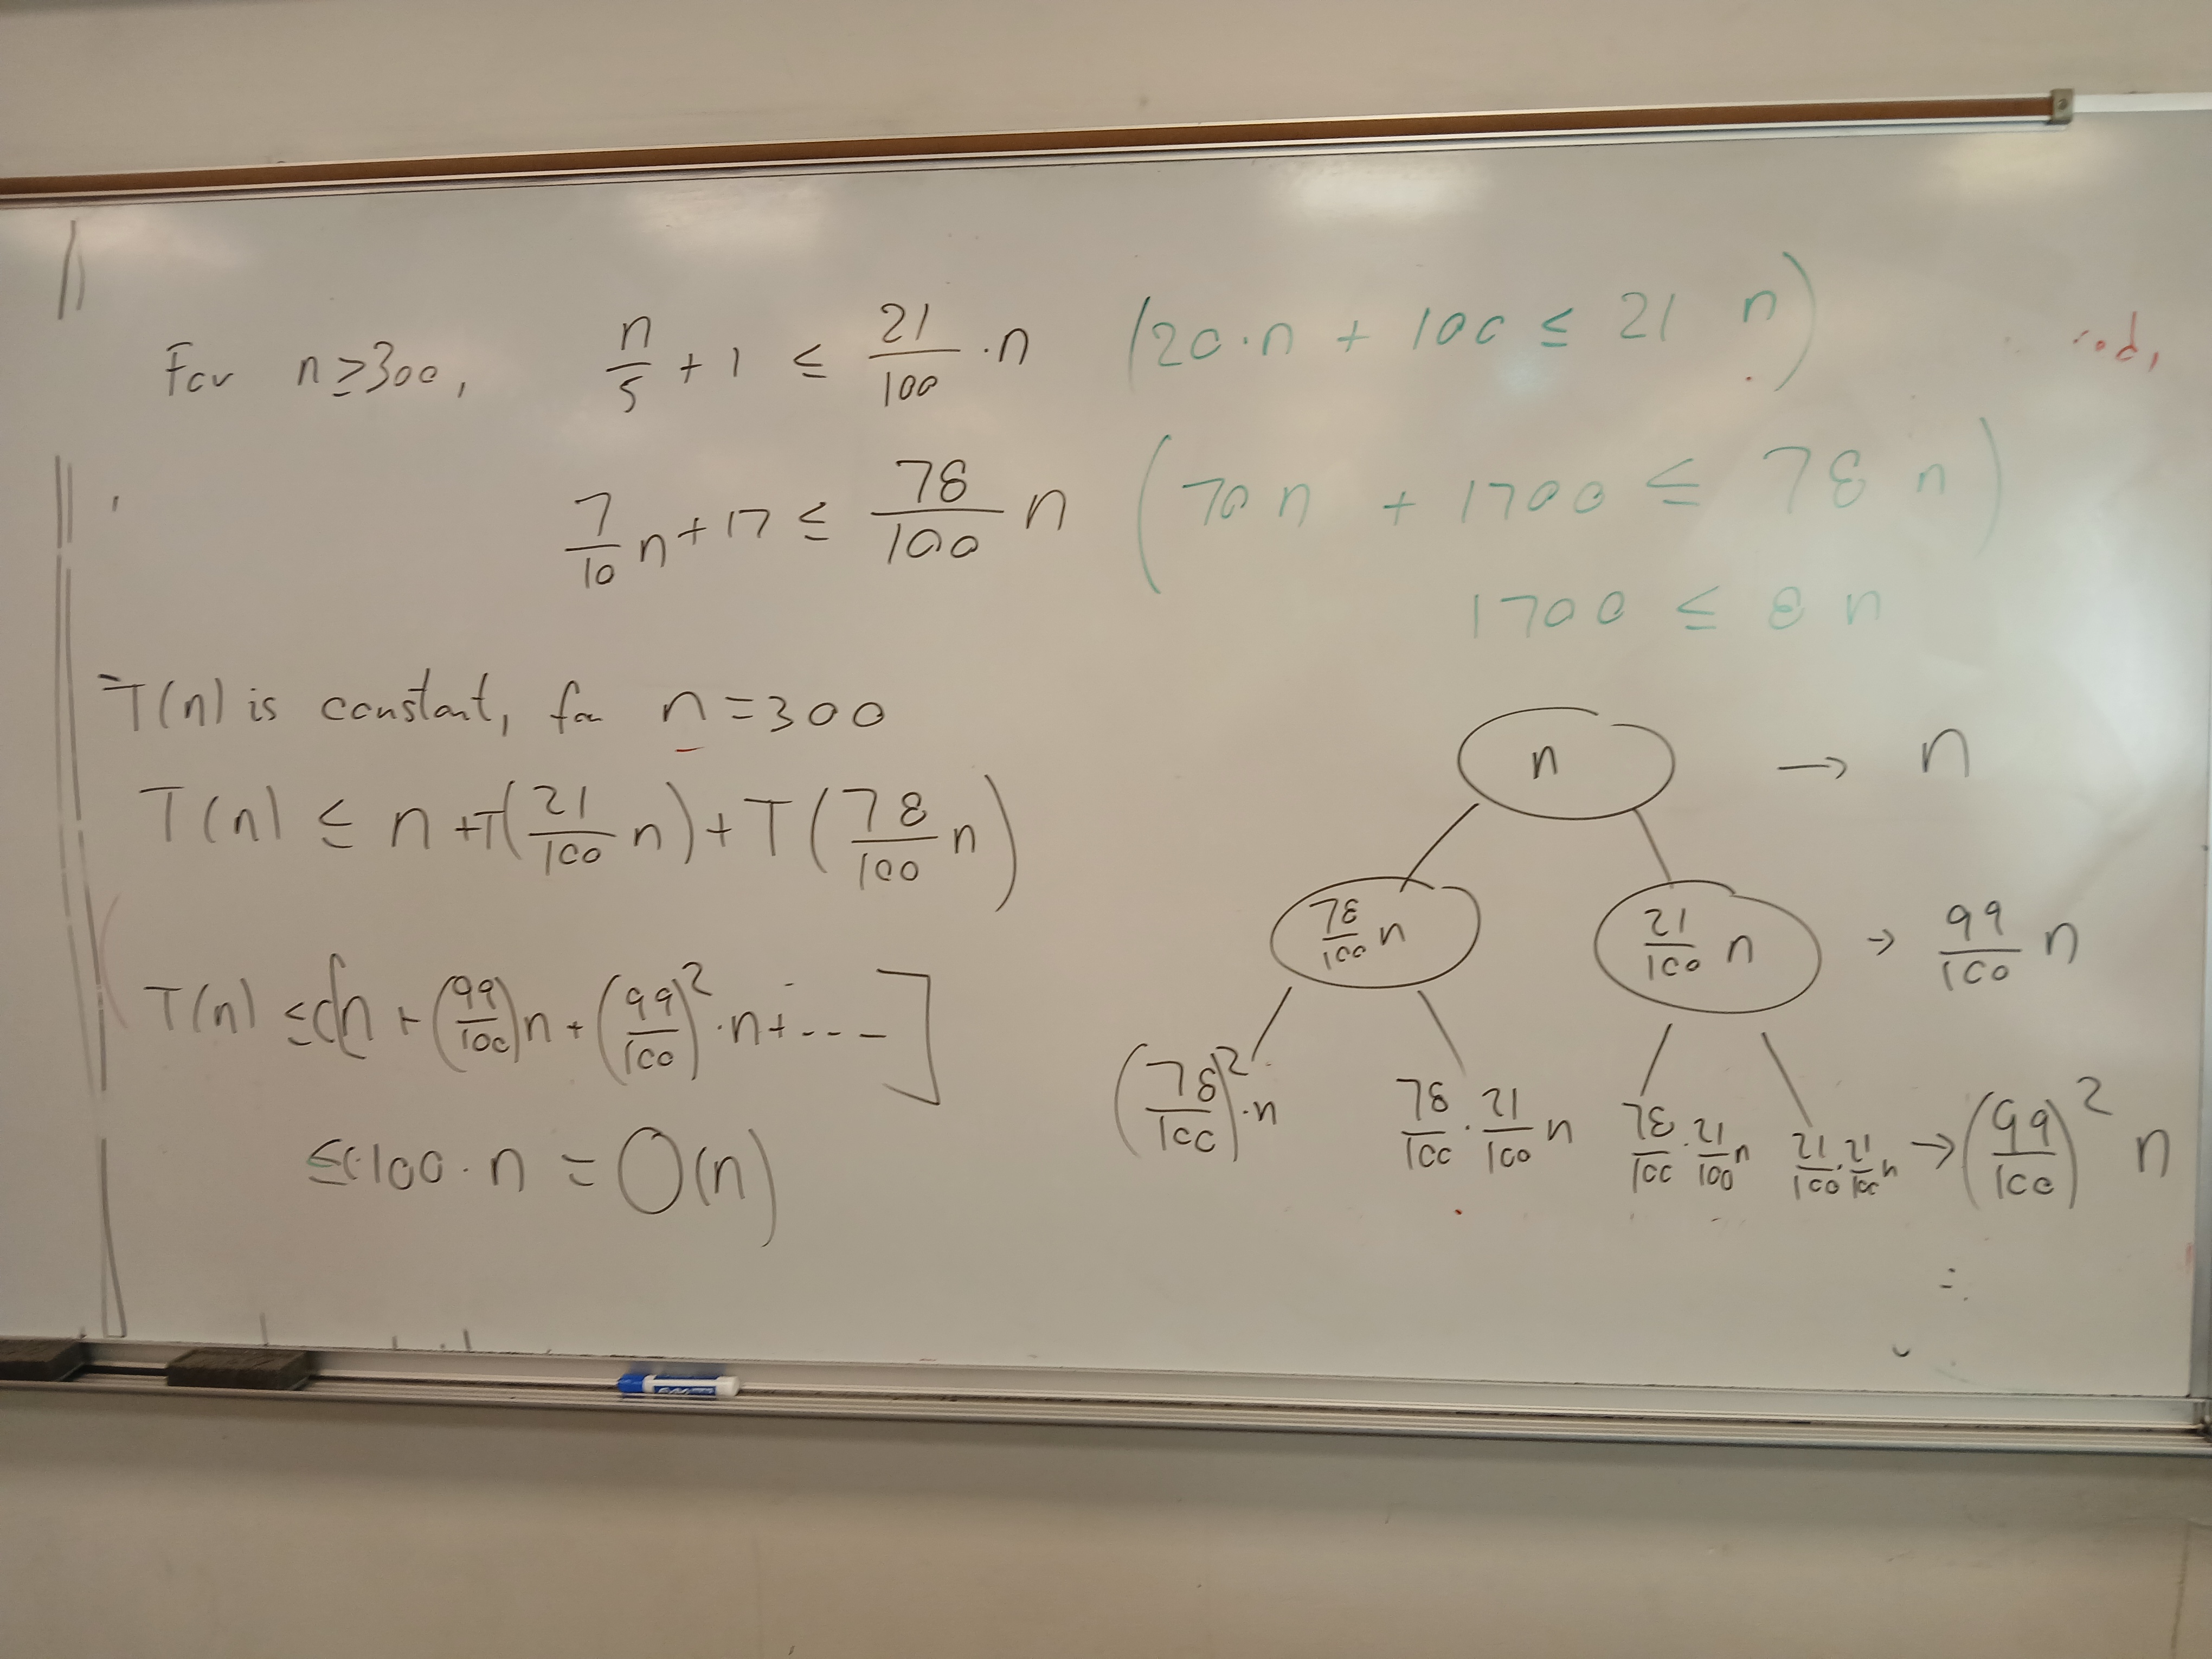 For n ≥ 300, n/5 + 1 ≤ 21/100 · n (20·n + 100 ≤ 21 n)
7/10 n + 17 ≤ 78/100 n (70 n + 1700 ≤ 78 n)
1700 ≤ 8 n
T(n) is constant, for n = 300
T(n) ≤ n + T(21/100 n) + T(78/100 n)
T(n) ≤ c[n + (99/100)n + (99/100)² · n + - - - ]
≤ c·100 · n = O(n)
n → n
78/100 n 21/100 n → 99/100 n
(78/100)² · n 78/100 · 21/100 n 78/100 · 21/100 n 21/100 · 21/100 n → (99/100)² n